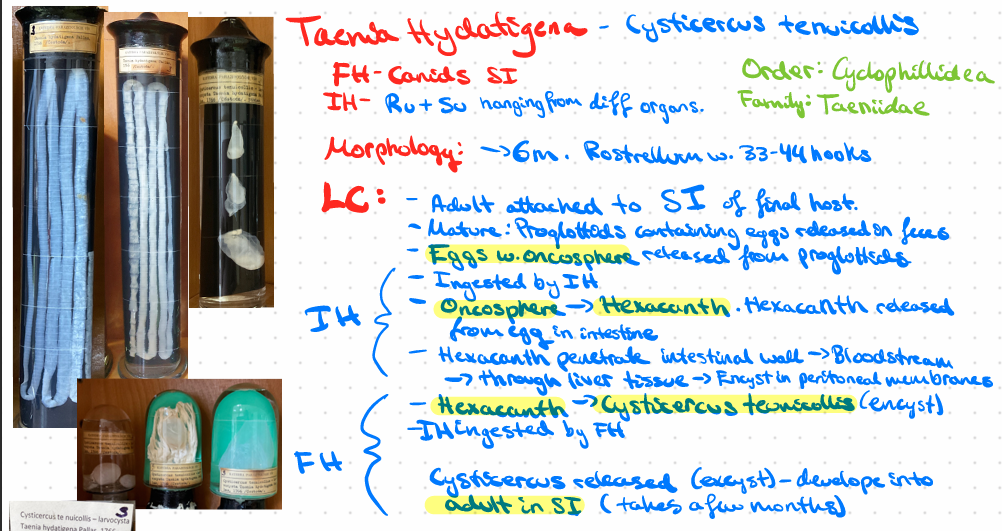 Taenia Hydatigena - Cysticercus tenuicollis
FH - Canids SI
Order: Cyclophillidea
IH - Ru + Su hanging from diff organs.
Family: Taeniidae
Morphology: → 6m. Rostrellum w. 33-44 hooks
LC:
- Adult attached to SI of final host.
- Mature: Proglottids containing eggs released in feces
- Eggs w. oncosphere released from proglottids
IH
- Ingested by IH
- Oncosphere → Hexacanth. Hexacanth released
from egg in intestine
- Hexacanth penetrate intestinal wall → Bloodstream
→ through liver tissue → Encyst in peritoneal membranes
FH
- Hexacanth → Cysticercus tenuicollis (encyst)
- IH ingested by FH
Cysticercus released (excyst) - develope into
adult in SI (takes a few months)
S
Cysticercus te nuicollis – larvocysta
Taenia hydatigena Pallas, 1766